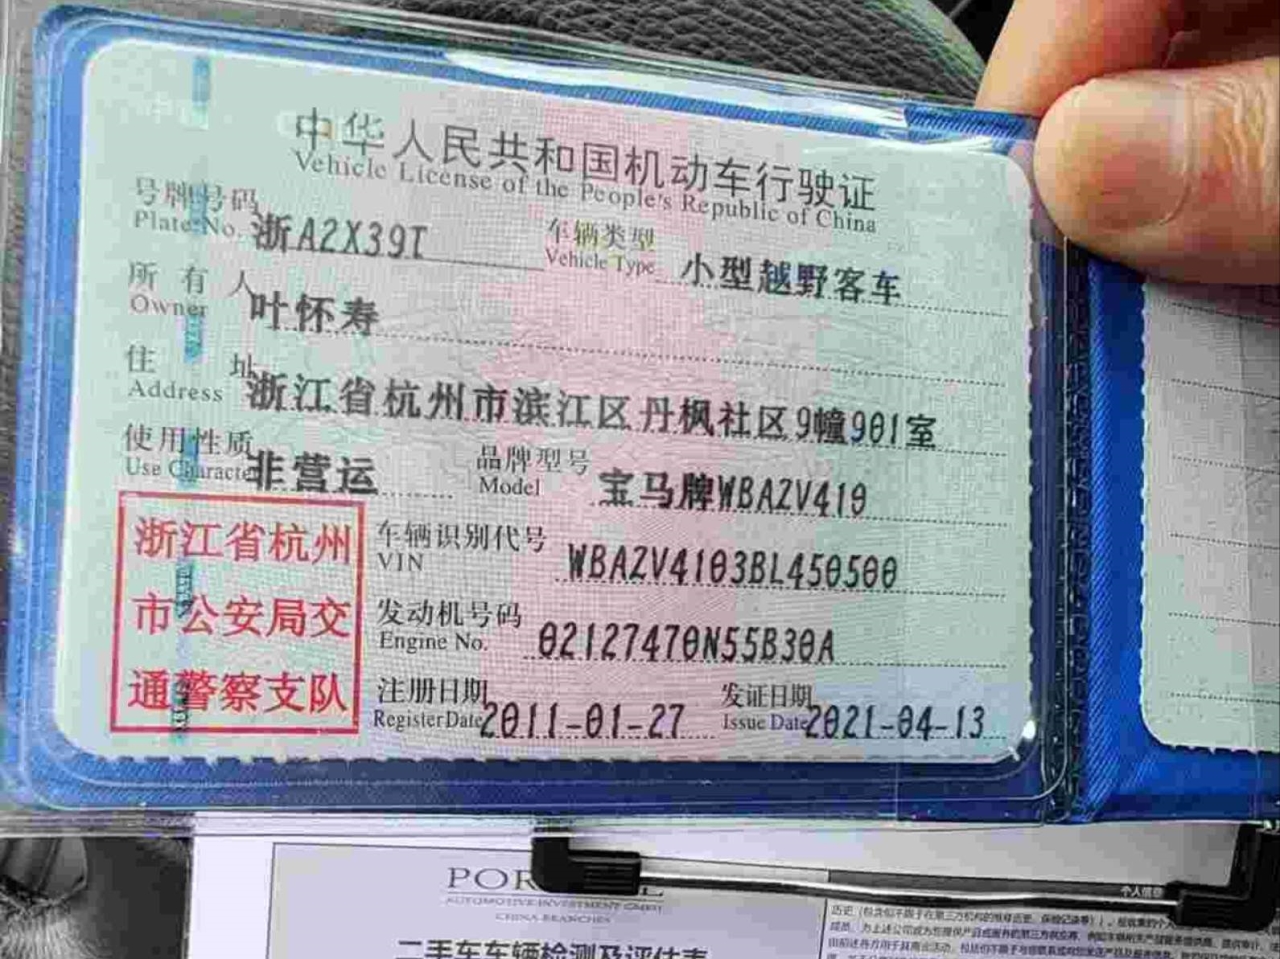 中华人民共和国机动车行驶证
Vehicle License of the People's Republic of China
号牌号码 浙A2X39T 车辆类型 小型越野客车
Plate No. Vehicle Type
所有人 叶怀寿
Owner
住址 浙江省杭州市滨江区丹枫社区9幢901室
Address
使用性质 非营运 品牌型号 宝马牌WBAZV410
Use Character Model
浙江省杭州
市公安局交
通警察支队
车辆识别代号 WBAZV4103BL450500
VIN
发动机号码 02127470N55B30A
Engine No.
注册日期 2011-01-27 发证日期 2021-04-13
Register Date Issue Date
AUTOMOTIVE INVESTMENT GMBH
CHINA BRANCHES
二手车车辆检测及评估表
个人信息